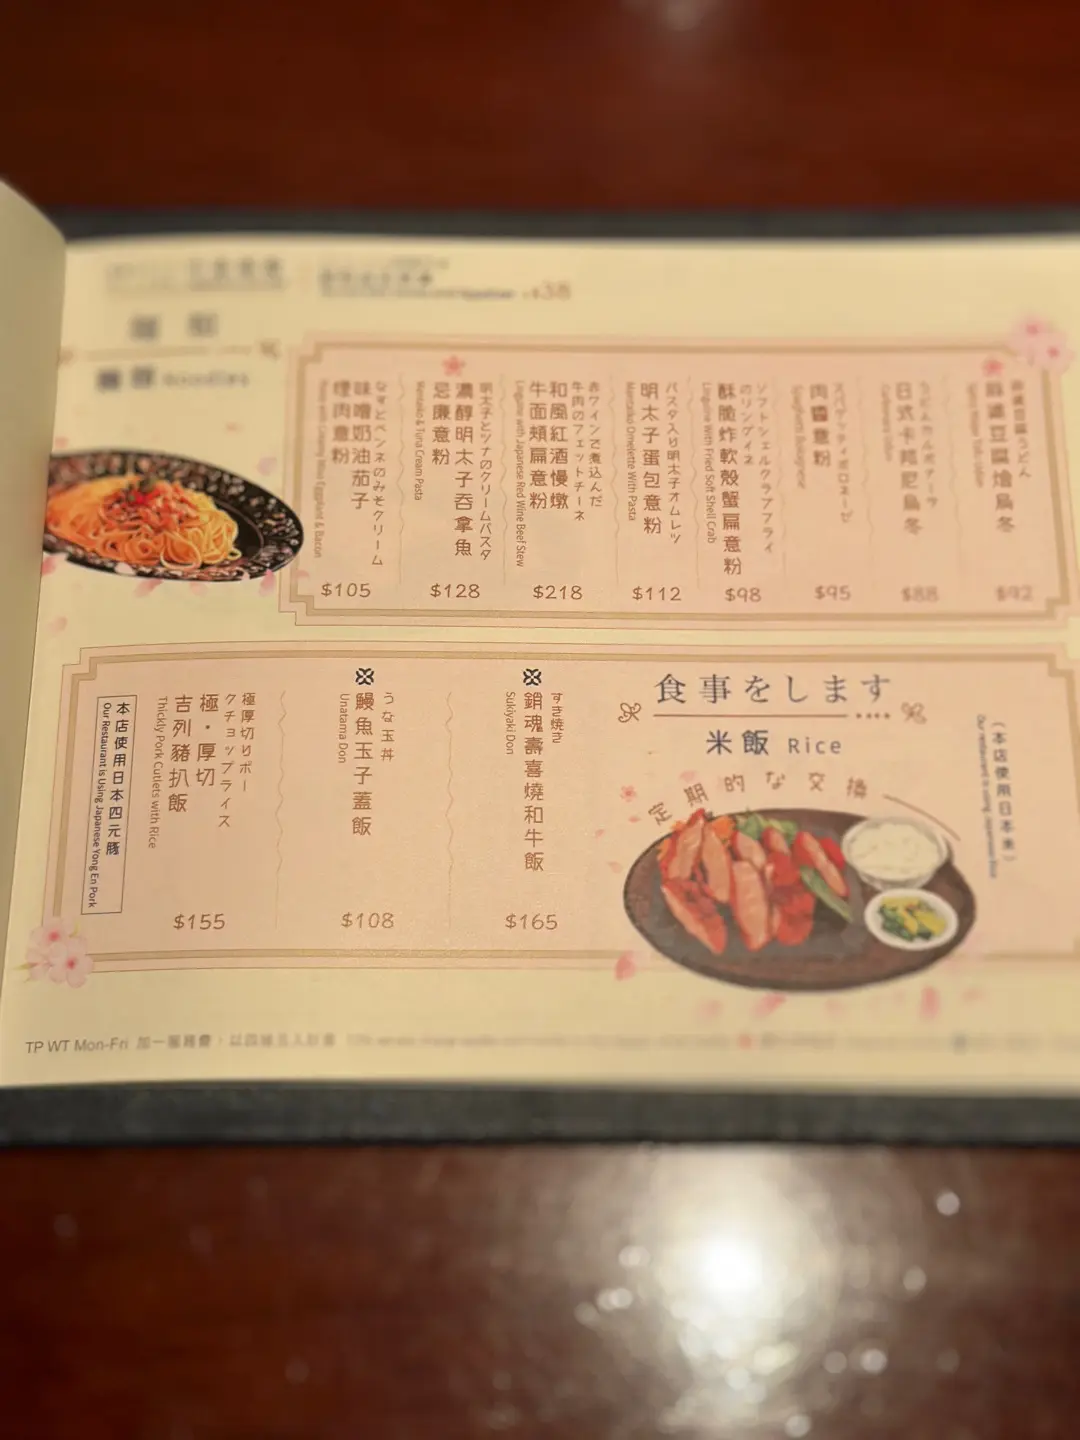 $38
Noodles
麻婆豆腐燴烏冬
$92
うどんカルボナーラ
日式卡邦尼烏冬
Carbonara Udon
$88
スパゲッティボロネーゼ
肉醬意粉
Spaghetti Bolognese
$95
ソフトシェルクラブフライ
のリングイネ
酥脆炸軟殼蟹扁意粉
Linguine With Fried Soft Shell Crab
$98
パスタ入り明太子オムレツ
明太子蛋包意粉
Mentaiko Omelette With Pasta
$112
赤ワインで煮込んだ
牛肉のフェットチーネ
和風紅酒慢燉
牛面頰扁意粉
Linguine with Japanese Red Wine Beef Stew
$218
明太子とツナのクリームパスタ
濃醇明太子吞拿魚
忌廉意粉
Mentaiko & Tuna Cream Pasta
$128
なすとペンネのみそクリーム
味噌奶油茄子
煙肉意粉
Eggplant & Bacon
$105
食事をします
米飯 Rice
定期的な交換
(本店使用日本米)
Our restaurant is using Japanese Rice
すき焼き
銷魂壽喜燒和牛飯
Sukiyaki Don
$165
うな玉丼
鰻魚玉子蓋飯
Unatama Don
$108
極厚切りポー
クチョップライス
極・厚切
吉列豬扒飯
Thickly Pork Cutlets with Rice
$155
本店使用日本四元豚
Our Restaurant is Using Japanese Yong En Pork
TP WT Mon-Fri 加一服務費